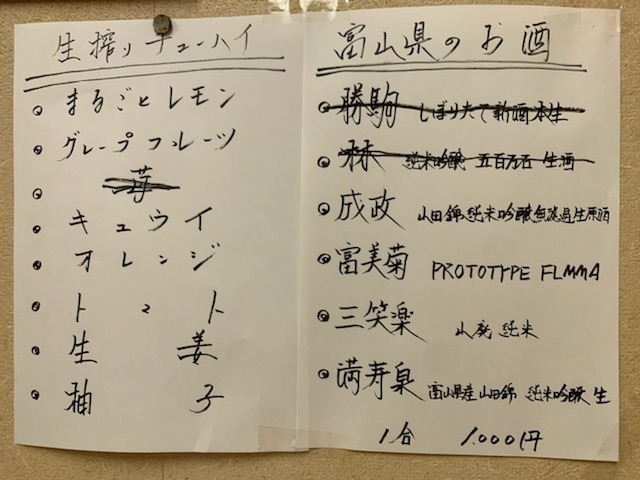 生搾りチューハイ
まるごとレモン
グレープフルーツ
苺
キュウイ
オレンジ
トマト
生姜
柚子
富山県のお酒
勝駒 しぼりたて新酒本生
林 純米吟醸 五百万石 生酒
成政 山田錦純米吟醸無濾過生原酒
富美菊 PROTOTYPE FLMMA
三笑楽 山廃純米
満寿泉 富山県産山田錦 純米吟醸 生
1合 1.000円